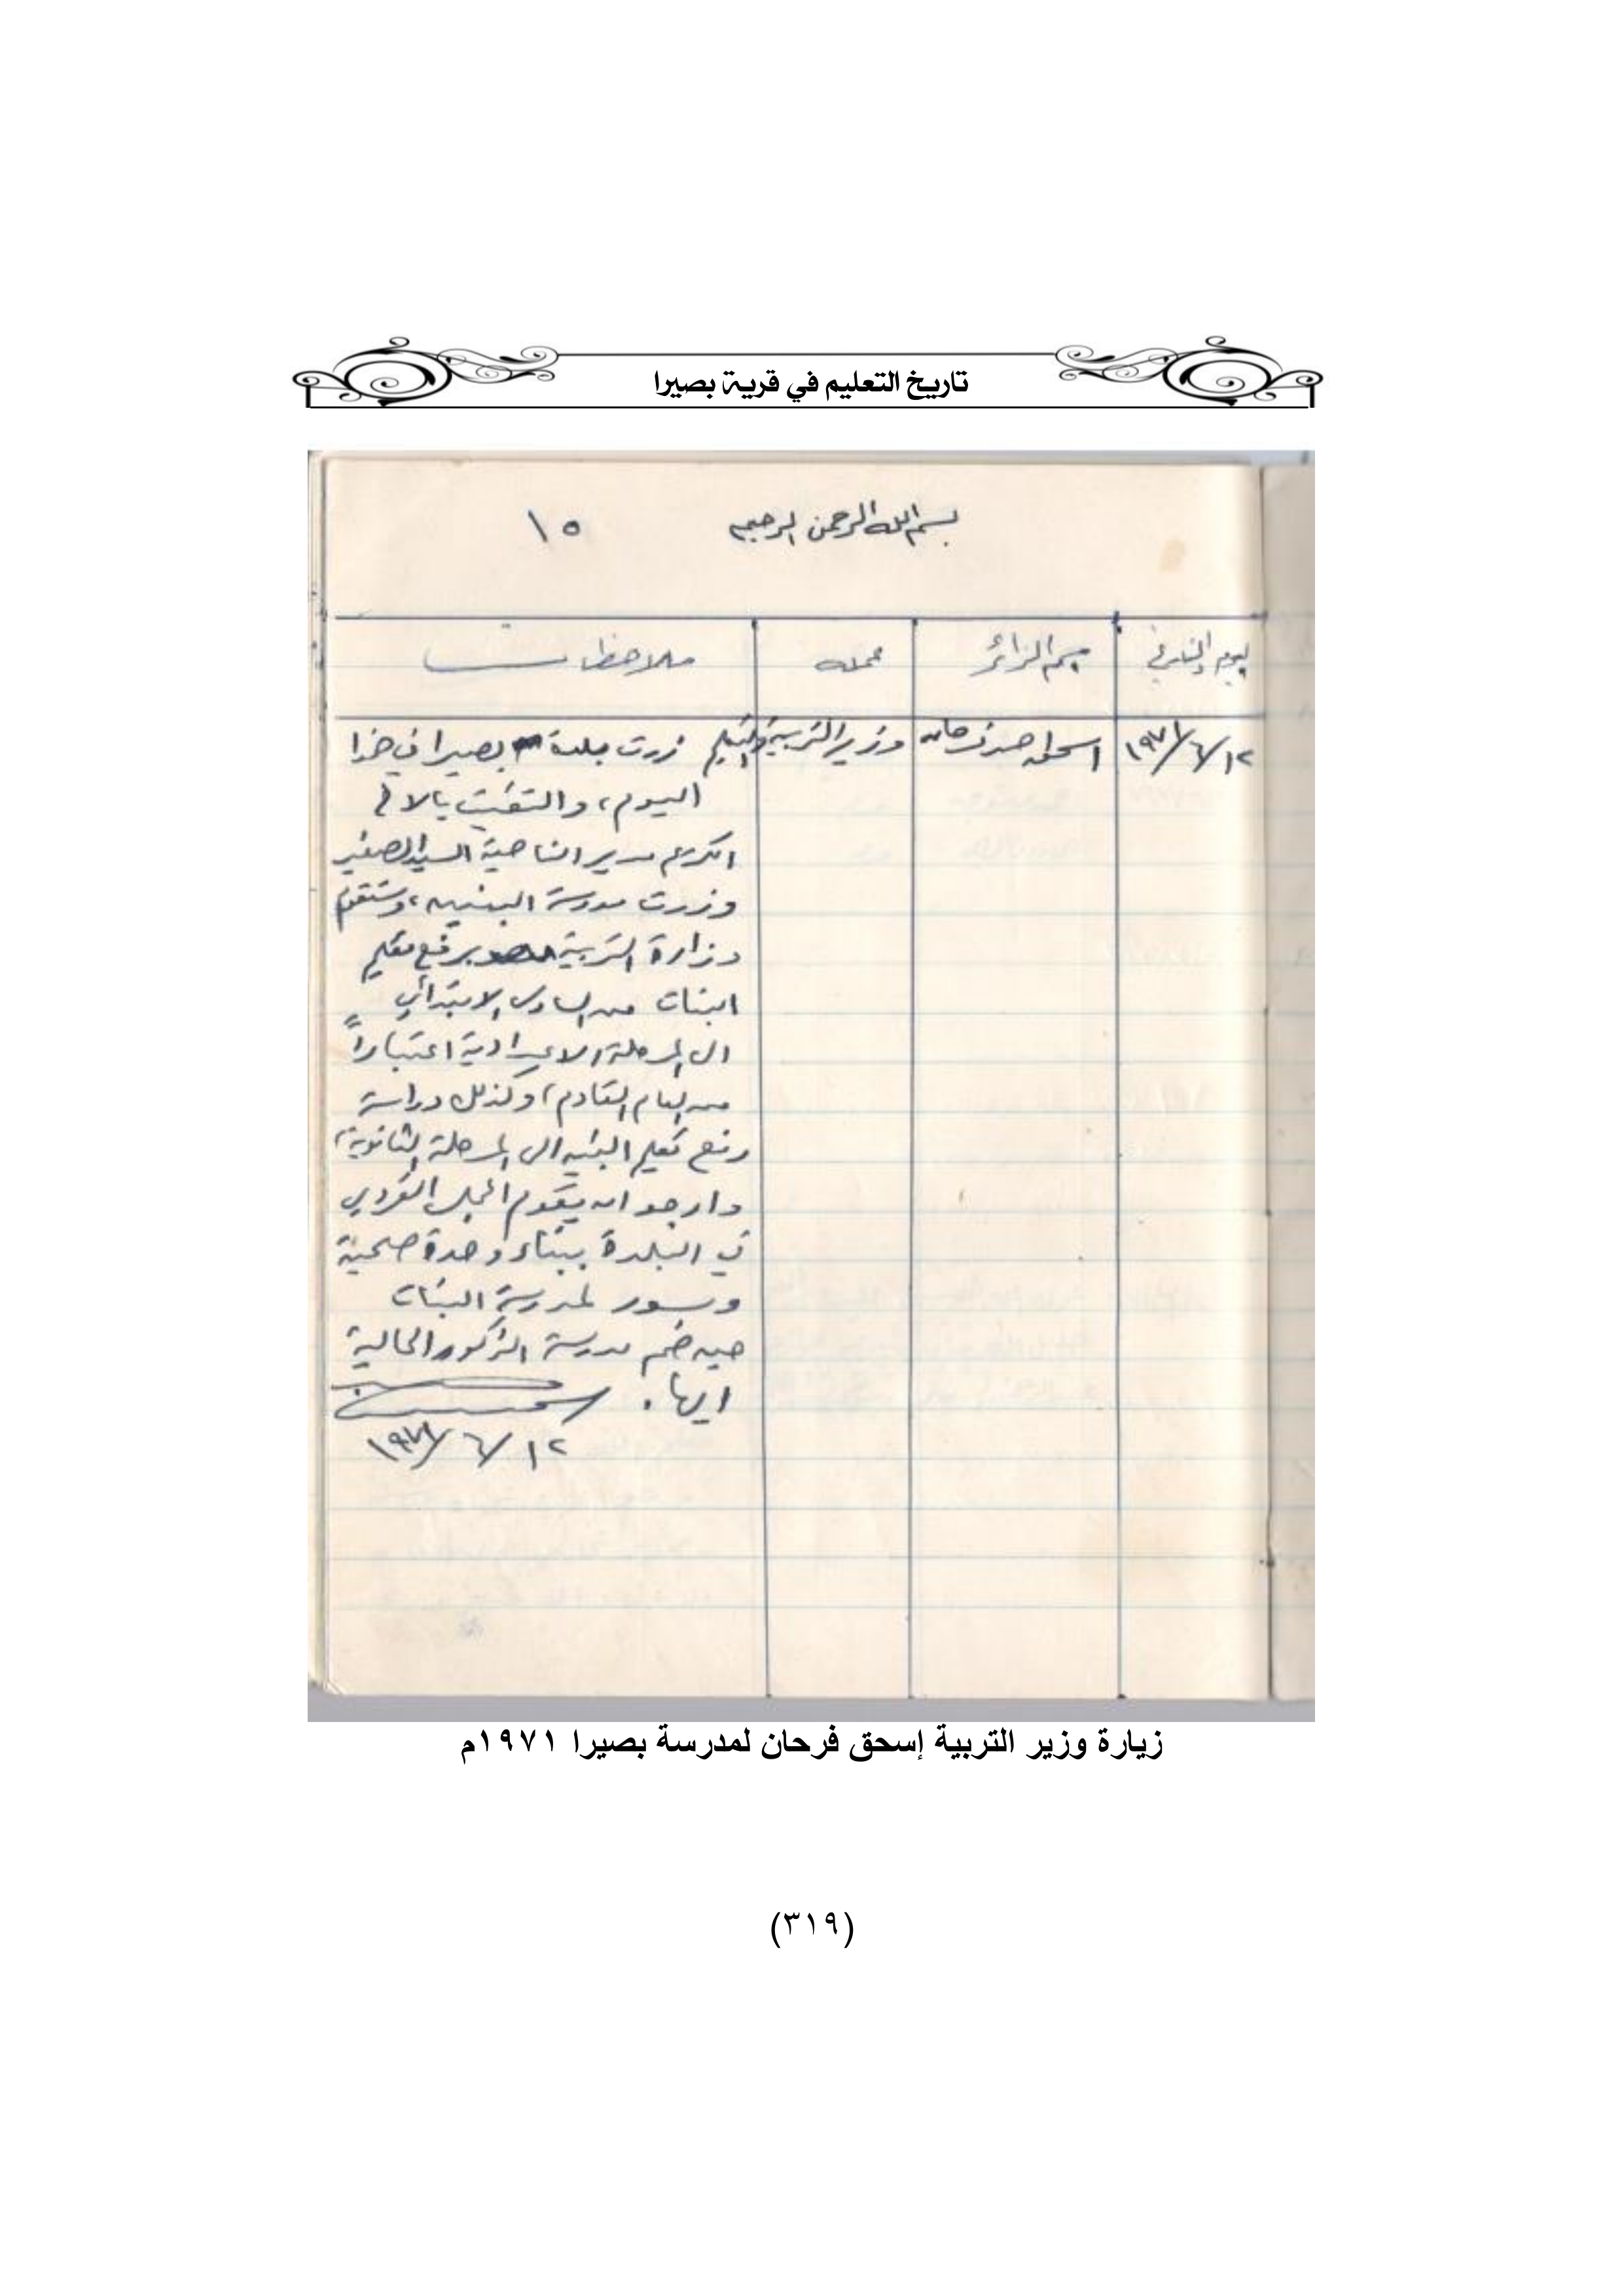 تاريخ التعليم في قرية بصيرا
بسم الله الرحمن الرحيم
١٥
اليوم والتاريخ
اسم الزائر
عمله
ملاحظات
١٩٧١/٦/١٢
اسحق فرحان
وزير التربية والتعليم
زرت بلدة بصيرا في هذا
اليوم، والتقيت بالاخ
الكريم مدير الناحية السيد
وزرت مدرسة البنين، وستقوم
وزارة التربية برفع تعليم
البنات من السادس الابتدائي
الى المرحلة الاعدادية اعتباراً
من العام القادم، وكذلك دراسة
رفع تعليم البنين الى المرحلة الثانوية،
وارجو ان يقوم المجلس القروي
في البلدة ببناء وحدة صحية
وسور لمدرسة البنات
حين ضم مدرسة الذكور الحالية
اليها.
١٩٧١/٦/١٢
زيارة وزير التربية إسحق فرحان لمدرسة بصيرا ١٩٧١م
(٣١٩)